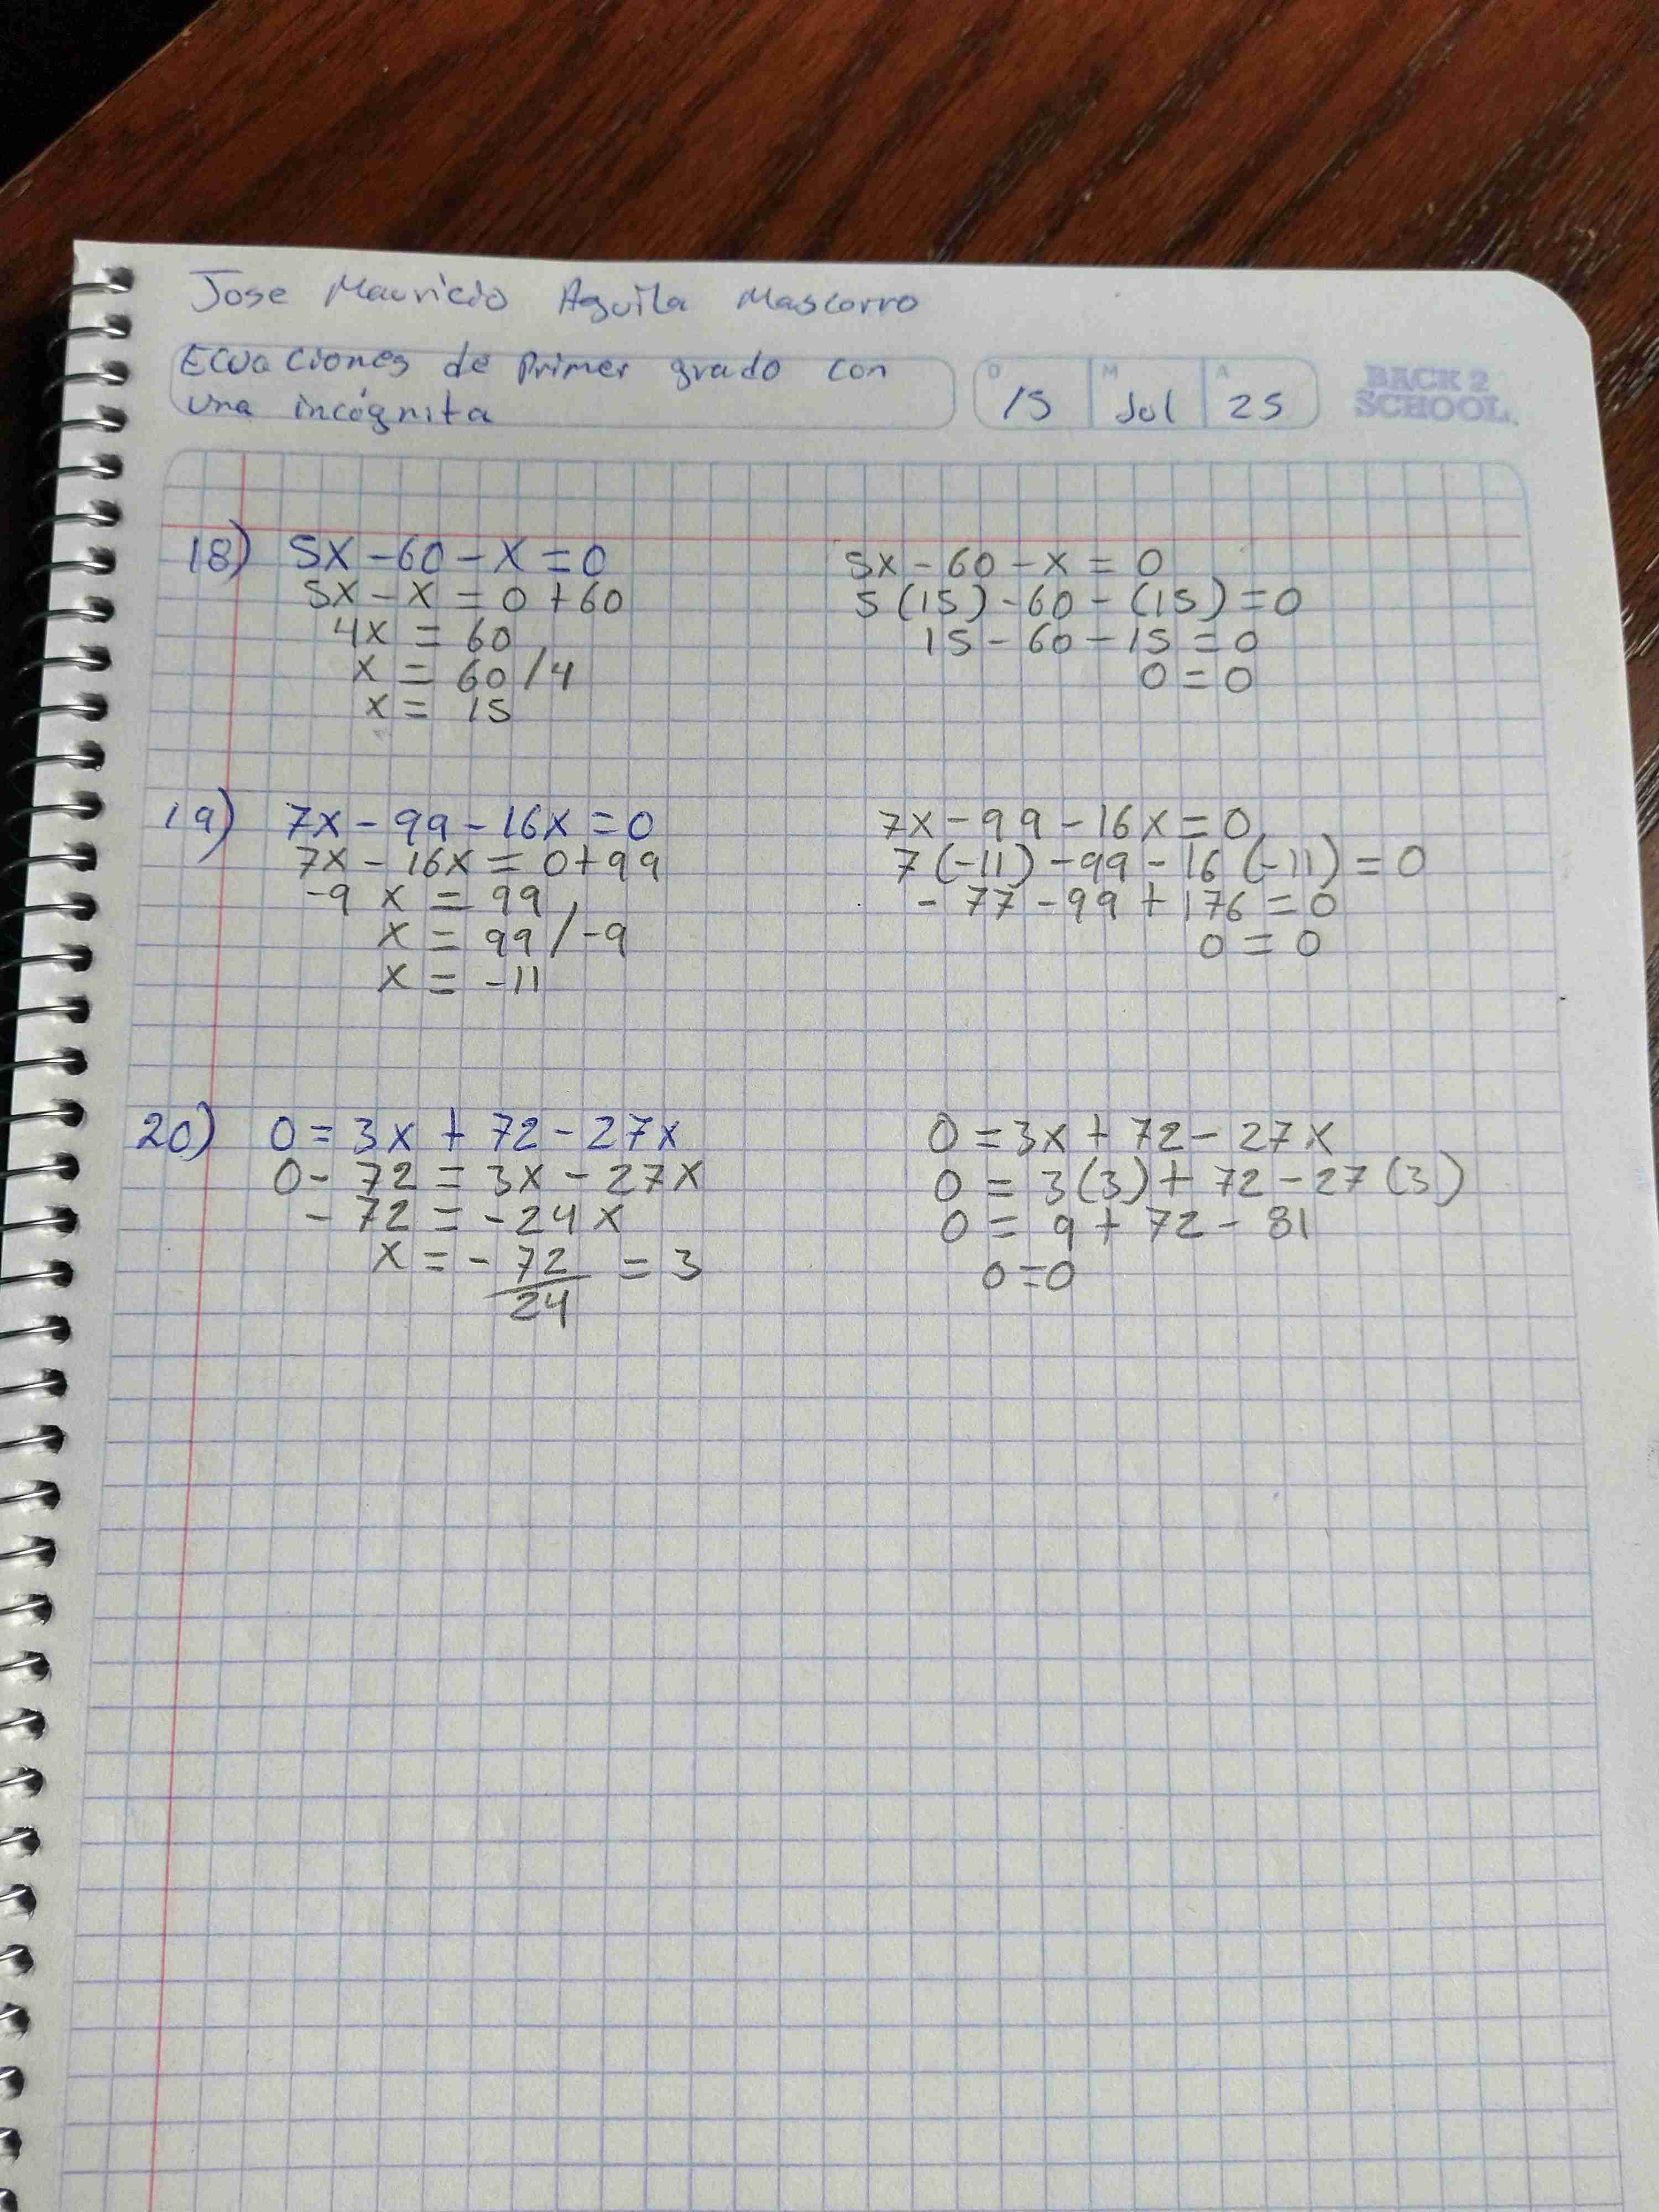 Jose Mauricio Aguila Mascorro
Ecuaciones de Primer grado con
una incógnita
D 15 M Jul A 25
BACK 2
SCHOOL
18) 5x - 60 - x = 0
5x - x = 0 + 60
4x = 60
x = 60 / 4
x = 15
5x - 60 - x = 0
5 (15) - 60 - (15) = 0
15 - 60 - 15 = 0
0 = 0
19) 7x - 99 - 16x = 0
7x - 16x = 0 + 99
-9 x = 99
x = 99 / -9
x = -11
7x - 99 - 16x = 0
7 (-11) - 99 - 16 (-11) = 0
- 77 - 99 + 176 = 0
0 = 0
20) 0 = 3x + 72 - 27x
0 - 72 = 3x - 27x
- 72 = -24x
x = - 72 / 24 = 3
0 = 3x + 72 - 27x
0 = 3(3) + 72 - 27 (3)
0 = 9 + 72 - 81
0 = 0